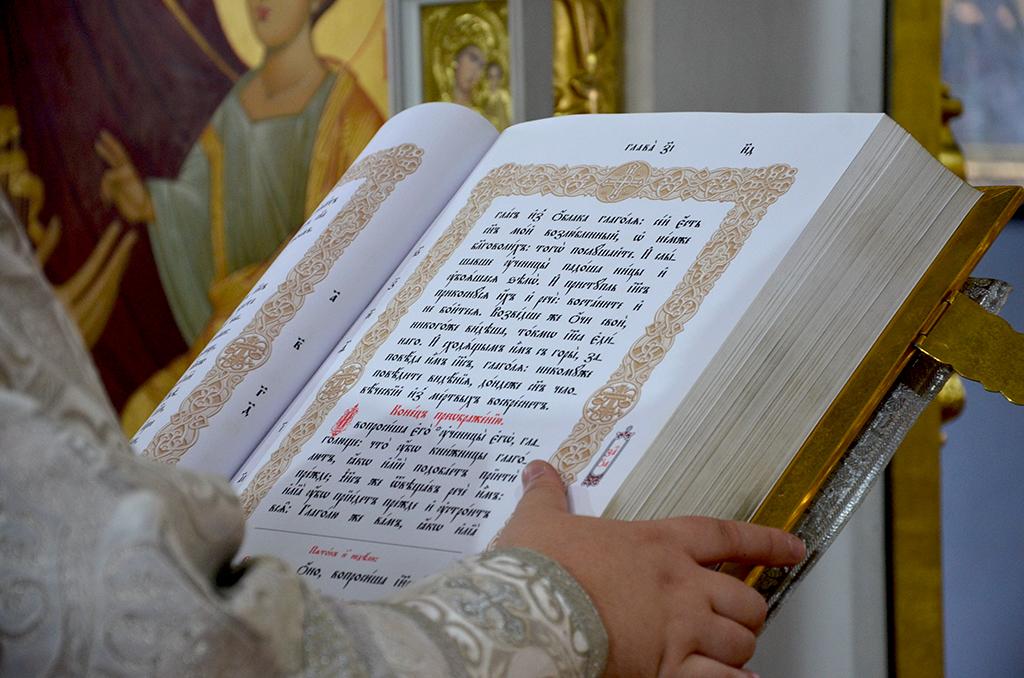 глава̀ з҃і н҃д
гла́съ и҆з̾ ѻ҆́блака глаго́лѧ: се́й є҆́сть
сн҃ъ мо́й возлю́бленный, ѡ҆ не́мже
бл҃говоли́хъ: тогѡ̀ послꙋ́шайте. И҆ слы́-
шавше ᲂу҆чн҃цы̀ падо́ша ни́цы и҆
ᲂу҆боѧ́шасѧ ѕѣлѡ̀. И҆ пристꙋ́пль і҆и҃съ
прикоснꙋ́сѧ и҆́хъ и҆ речѐ: воста́ните и҆
не бо́йтесѧ. Возве́дше же ѻ҆́чи своѝ,
никого́же ви́дѣша, то́кмѡ і҆и҃са є҆ди́-
наго. И҆ сходѧ́щымъ и҆̀мъ съ горы̀, за-
повѣ́да и҆̀мъ і҆и҃съ, глаго́лѧ: никомꙋ́же
повѣ́дите видѣ́нїѧ, до́ндеже сн҃ъ чело-
вѣ́ческїй и҆з̾ ме́ртвыхъ воскре́снетъ.
Коне́цъ преѡбраже́нїю.
И҆ вопроси́ша є҆го̀ ᲂу҆чн҃цы̀ є҆гѡ̀, гла-
го́люще: что̀ ᲂу҆̀бѡ кни́жницы глаго́-
лютъ, ꙗ҆́кѡ и҆лїѝ подоба́етъ прїитѝ
пре́жде; І҆и҃съ же ѿвѣща́въ речѐ и҆̀мъ:
и҆лїа̀ ᲂу҆́бѡ прїи́детъ пре́жде и҆ ᲂу҆стро́итъ
всѧ̑: Глаго́лю же ва́мъ, ꙗ҆́кѡ и҆лїа̀
вопроси́ша